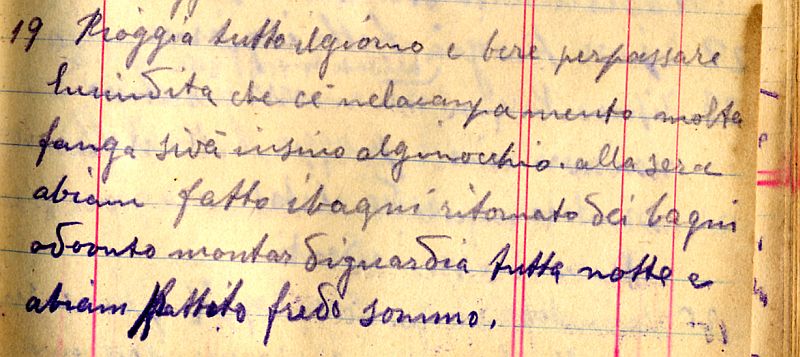 19 Pioggia tutto ilgiorno e bere perpassare
lumidita che cé nelacampamento molta
fanga sivà insino alginocchio. alla sera
abiam fatto ibagni ritornato dei bagni
odovuto montar diguardia tutta notte e
abiam patito fredo sonno.